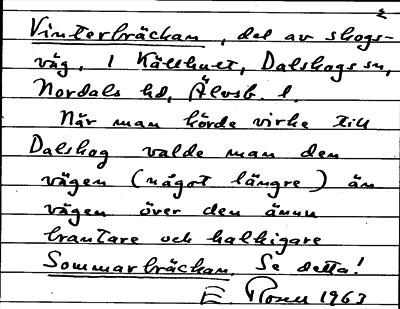 Vinterbräckan, del av skogs-
väg, i Källhult, Dalskogs sn,
Nordals hd, Älvsb. l.
När man körde virke till
Dalskog valde man den
vägen (något längre) än
vägen över den ännu
brantare och halkigare
Sommarbräckan. Se detta!
E. Rosen 1963